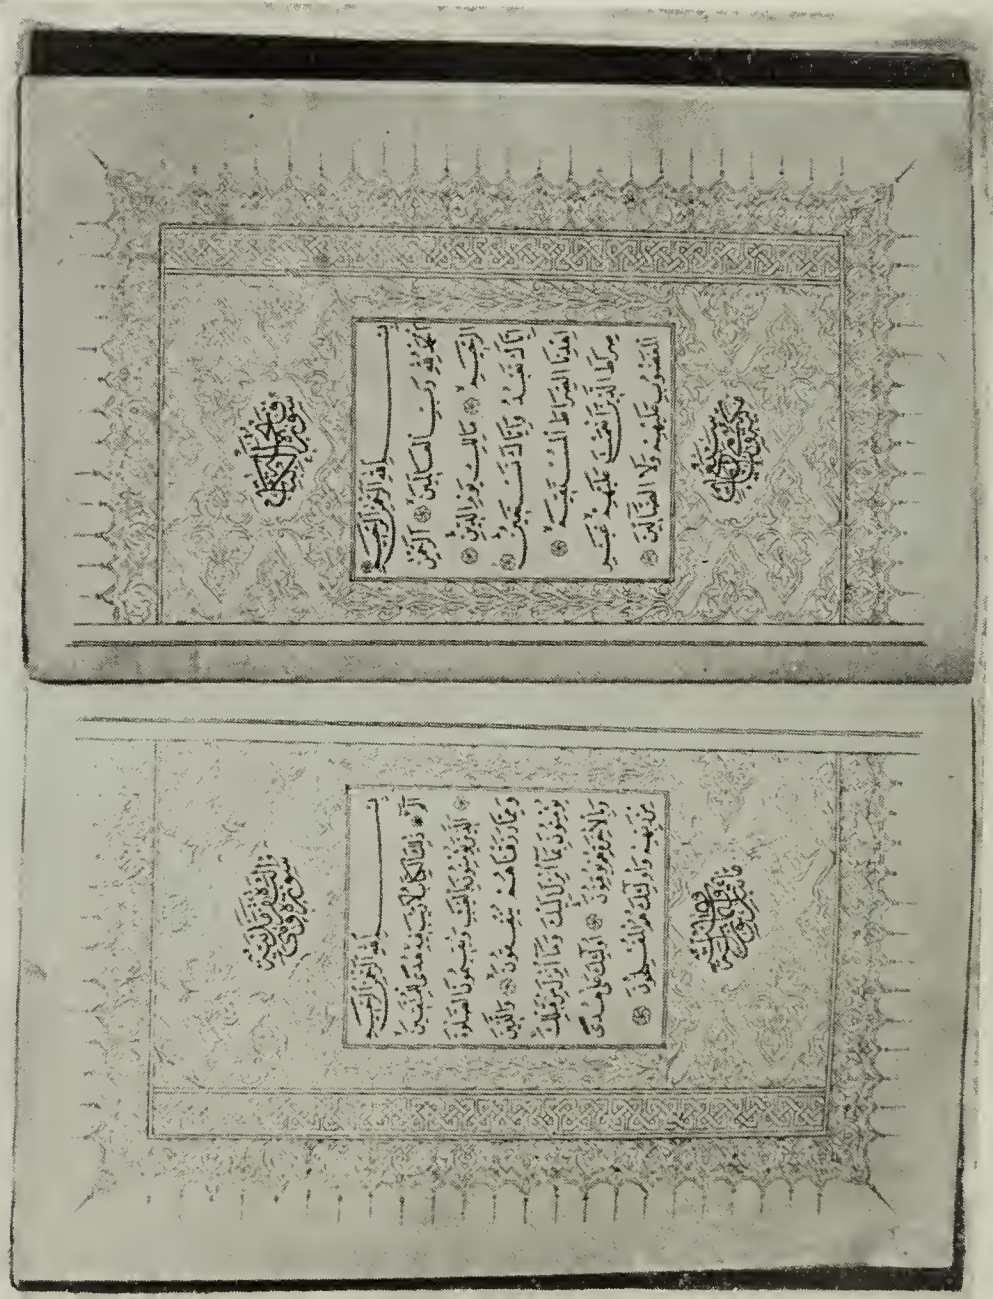 سورة فاتحة الكتاب
بِسْمِ اللهِ الرَّحْمٰنِ الرَّحِيمِ
اَلْحَمْدُ لِلهِ رَبِّ الْعَالَمِينَ اَلرَّحْمٰنِ
الرَّحِيمِ مَالِكِ يَوْمِ الدِّينِ
اِيَّاكَ نَعْبُدُ وَاِيَّاكَ نَسْتَعِينُ
اِهْدِنَا الصِّرَاطَ الْمُسْتَقِيمَ
صِرَاطَ الَّذِينَ اَنْعَمْتَ عَلَيْهِمْ غَيْرِ
الْمَغْضُوبِ عَلَيْهِمْ وَلَا الضَّالِّينَ
سورة البقرة مدنية وهي
بِسْمِ اللهِ الرَّحْمٰنِ الرَّحِيمِ
الٓمٓ ذٰلِكَ الْكِتَابُ لَا رَيْبَ فِيهِ هُدًى لِلْمُتَّقِينَ
اَلَّذِينَ يُؤْمِنُونَ بِالْغَيْبِ وَيُقِيمُونَ الصَّلٰوةَ
وَمِمَّا رَزَقْنَاهُمْ يُنْفِقُونَ وَالَّذِينَ
يُؤْمِنُونَ بِمَا اُنْزِلَ اِلَيْكَ وَمَا اُنْزِلَ مِنْ قَبْلِكَ
وَبِالْاٰخِرَةِ هُمْ يُوقِنُونَ اُولٰئِكَ عَلٰى هُدًى
مِنْ رَبِّهِمْ وَاُولٰئِكَ هُمُ الْمُفْلِحُونَ